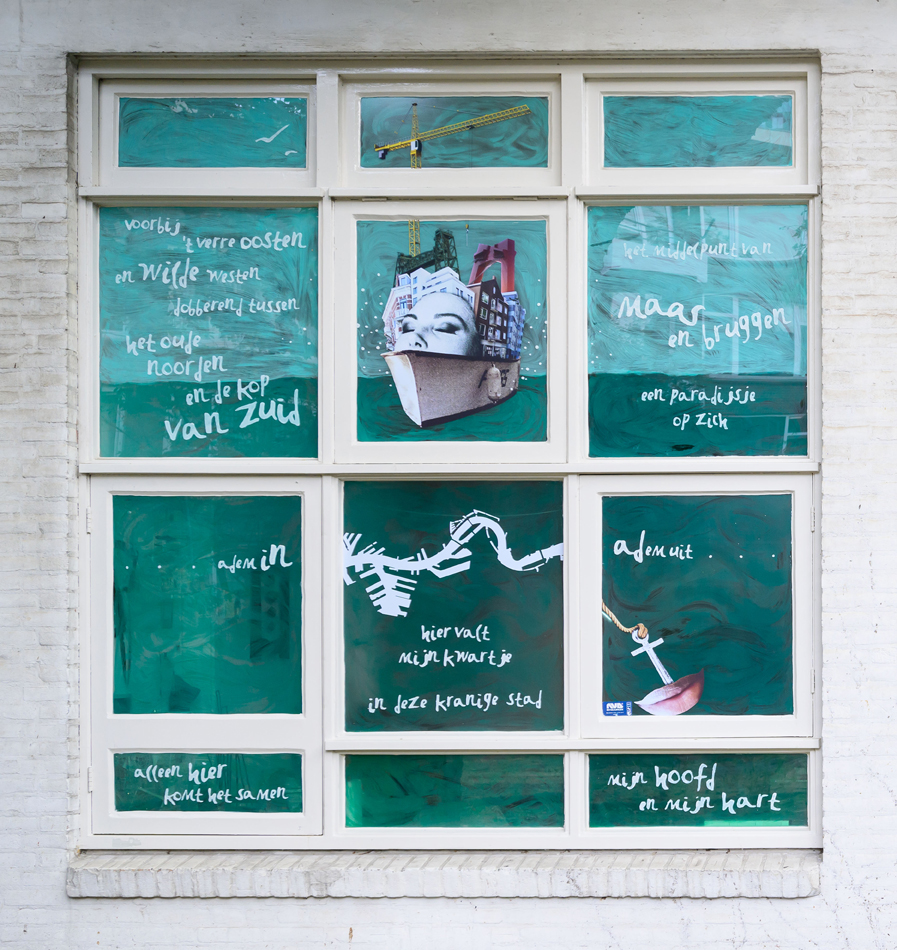 voorbij
't verre oosten
en wilde westen
dobberend tussen
het oude
noorden
en de kop
van zuid
het middelpunt van
Maas
en bruggen
een paradijsje
op zich
. . . adem in
hier valt
mijn kwartje
in deze kranige stad
adem uit . . .
alleen hier
komt het samen
mijn hoofd
en mijn hart